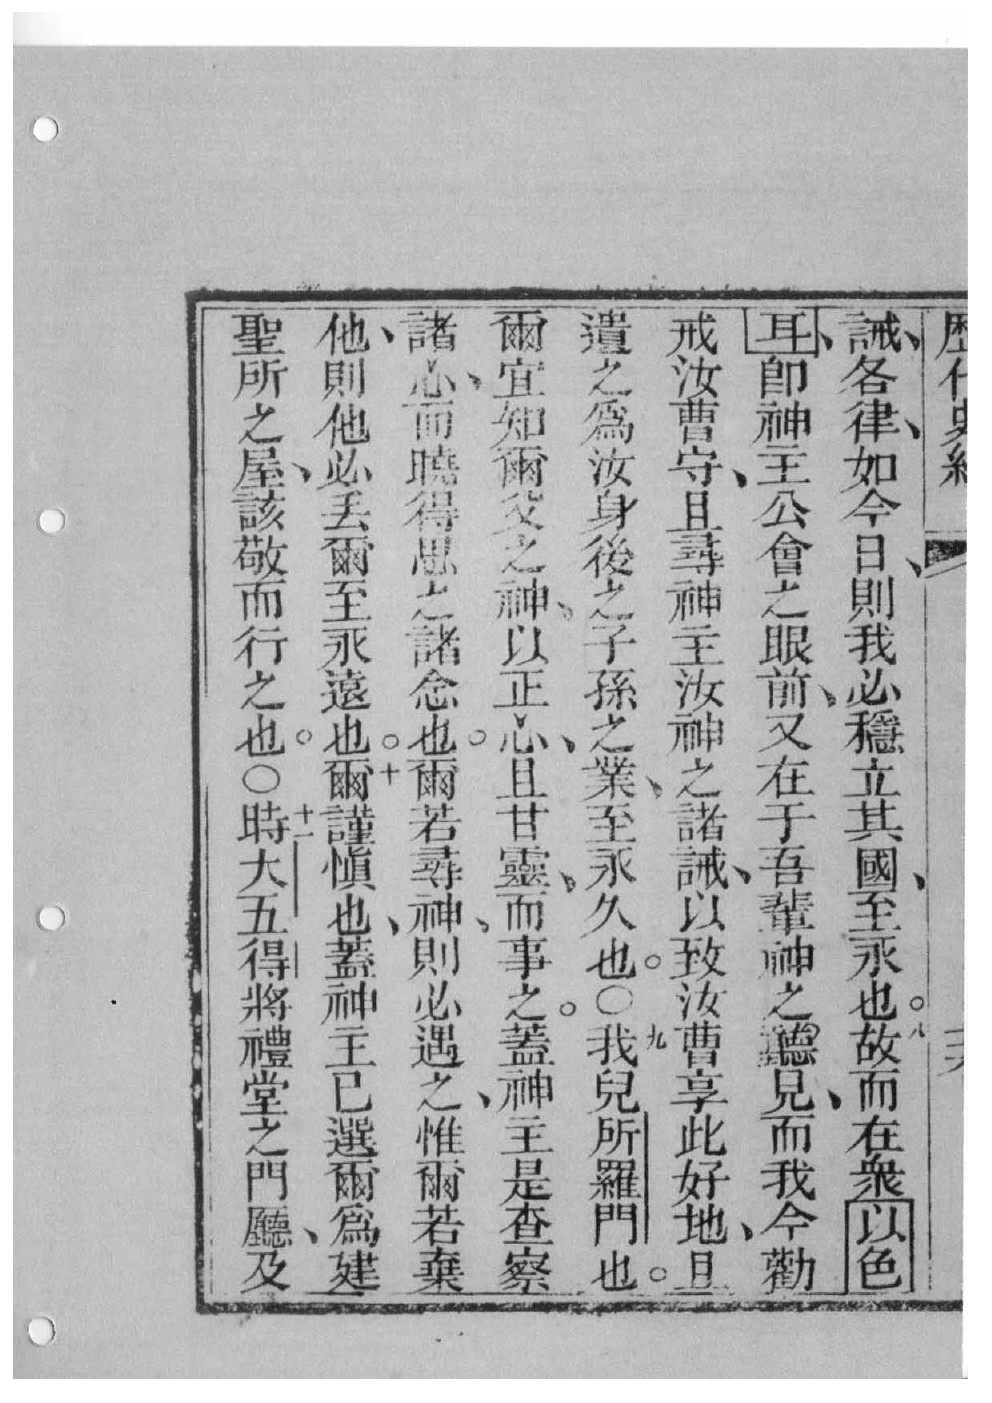 歴代史紀
誡、各律、如今日、則我必穩立其國、至永也。八故而在衆以色
耳、卽神主公會之眼前、又在于吾輩神之聽見、而我今勸
戒汝曹守、且尋神主汝神之諸誡、以致汝曹享此好地、且
遺之爲汝身後之子孫之業、至永久也。○九我兒所羅門也。
爾宜知爾父之神、以正心、且甘靈、而事之。蓋神主是查察
諸心、而曉得思之諸念也。爾若尋神、則必遇之、惟爾若棄
他、則他必丟爾至永遠也。十爾謹愼也、蓋神主已選爾爲建
聖所之屋、該敬而行之也。○十一時大五得將禮堂之門廳、及